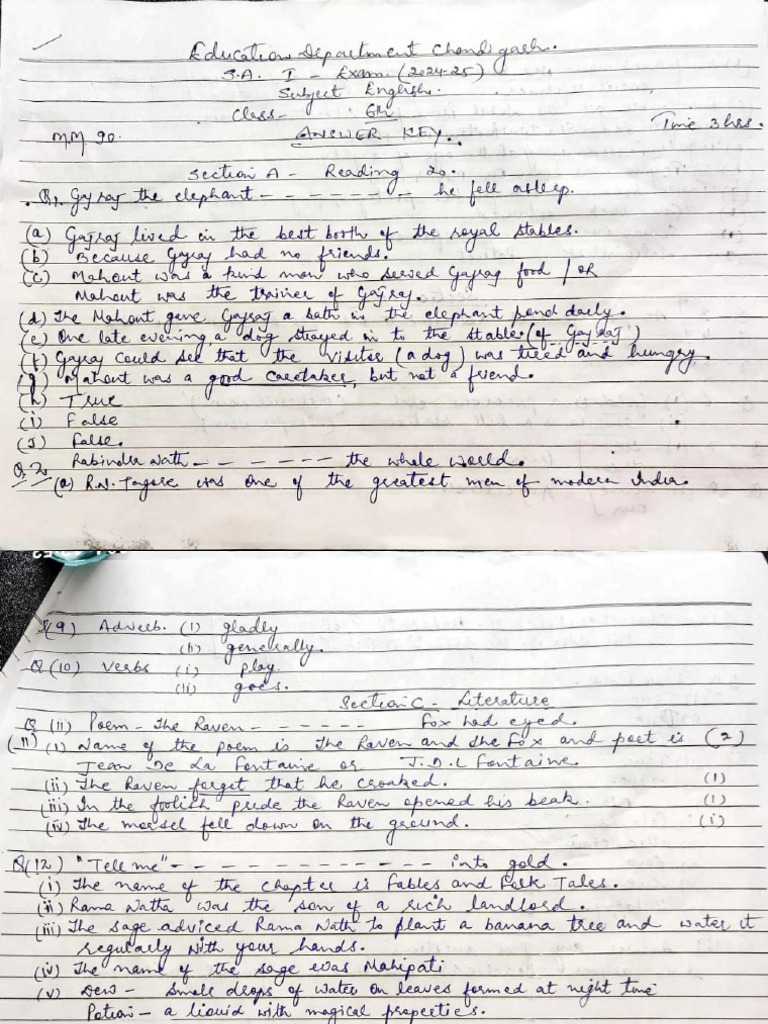 Education Department Chandigarh.
S.A. I - Exam (2024-25)
Subject English.
Class- 6th
M.M 90. ANSWER KEY.. Time 3 hrs.
Section A - Reading 20.
Q1. Gajraj the elephant - - - - - - - he fell asleep.
(a) Gajraj lived in the best booth of the royal stables.
(b) Because Gajraj had no friends.
(c) Mahout was a kind man who served Gajraj food / OR
Mahout was the trainer of Gajraj.
(d) The Mahout gave Gajraj a bath in the elephant pond daily.
(e) One late evening a dog strayed in to the stable. (of Gajraj)
(f) Gajraj could see that the visitor (a dog) was tired and hungry.
(g) Mahout was a good caretaker, but not a friend.
(h) True
(i) False
(J) False.
Q.2. Rabindra Nath - - - - - - - the whole world.
(a) R.N. Tagore was one of the greatest men of modern India.
Q(9) Adverb. (i) gladly
(ii) generally.
Q(10) Verbs (i) play.
(ii) goes.
Section C - Literature
Q (11) Poem - The Raven - - - - - - Fox had eyed.
(11) (i) Name of the poem is The Raven and the Fox and poet is (2)
Jean De La Fontaine or J.D.L Fontaine.
(ii) The Raven forget that he croaked. (1)
(iii) In the foolish pride the Raven opened his beak. (1)
(iv) The morsel fell down on the ground. (1)
Q(12) "Tell me" - - - - - - - - - - - - into gold.
(i) The name of the chapter is Fables and Folk Tales.
(ii) Rama Natha was the son of a rich landlord.
(iii) The sage adviced Rama Nath to plant a banana tree and water it
regularly with your hands.
(iv) The name of the sage was Mahipati
(v) Dew - Small drops of water on leaves formed at night time
Potion - a liquid with magical properties.